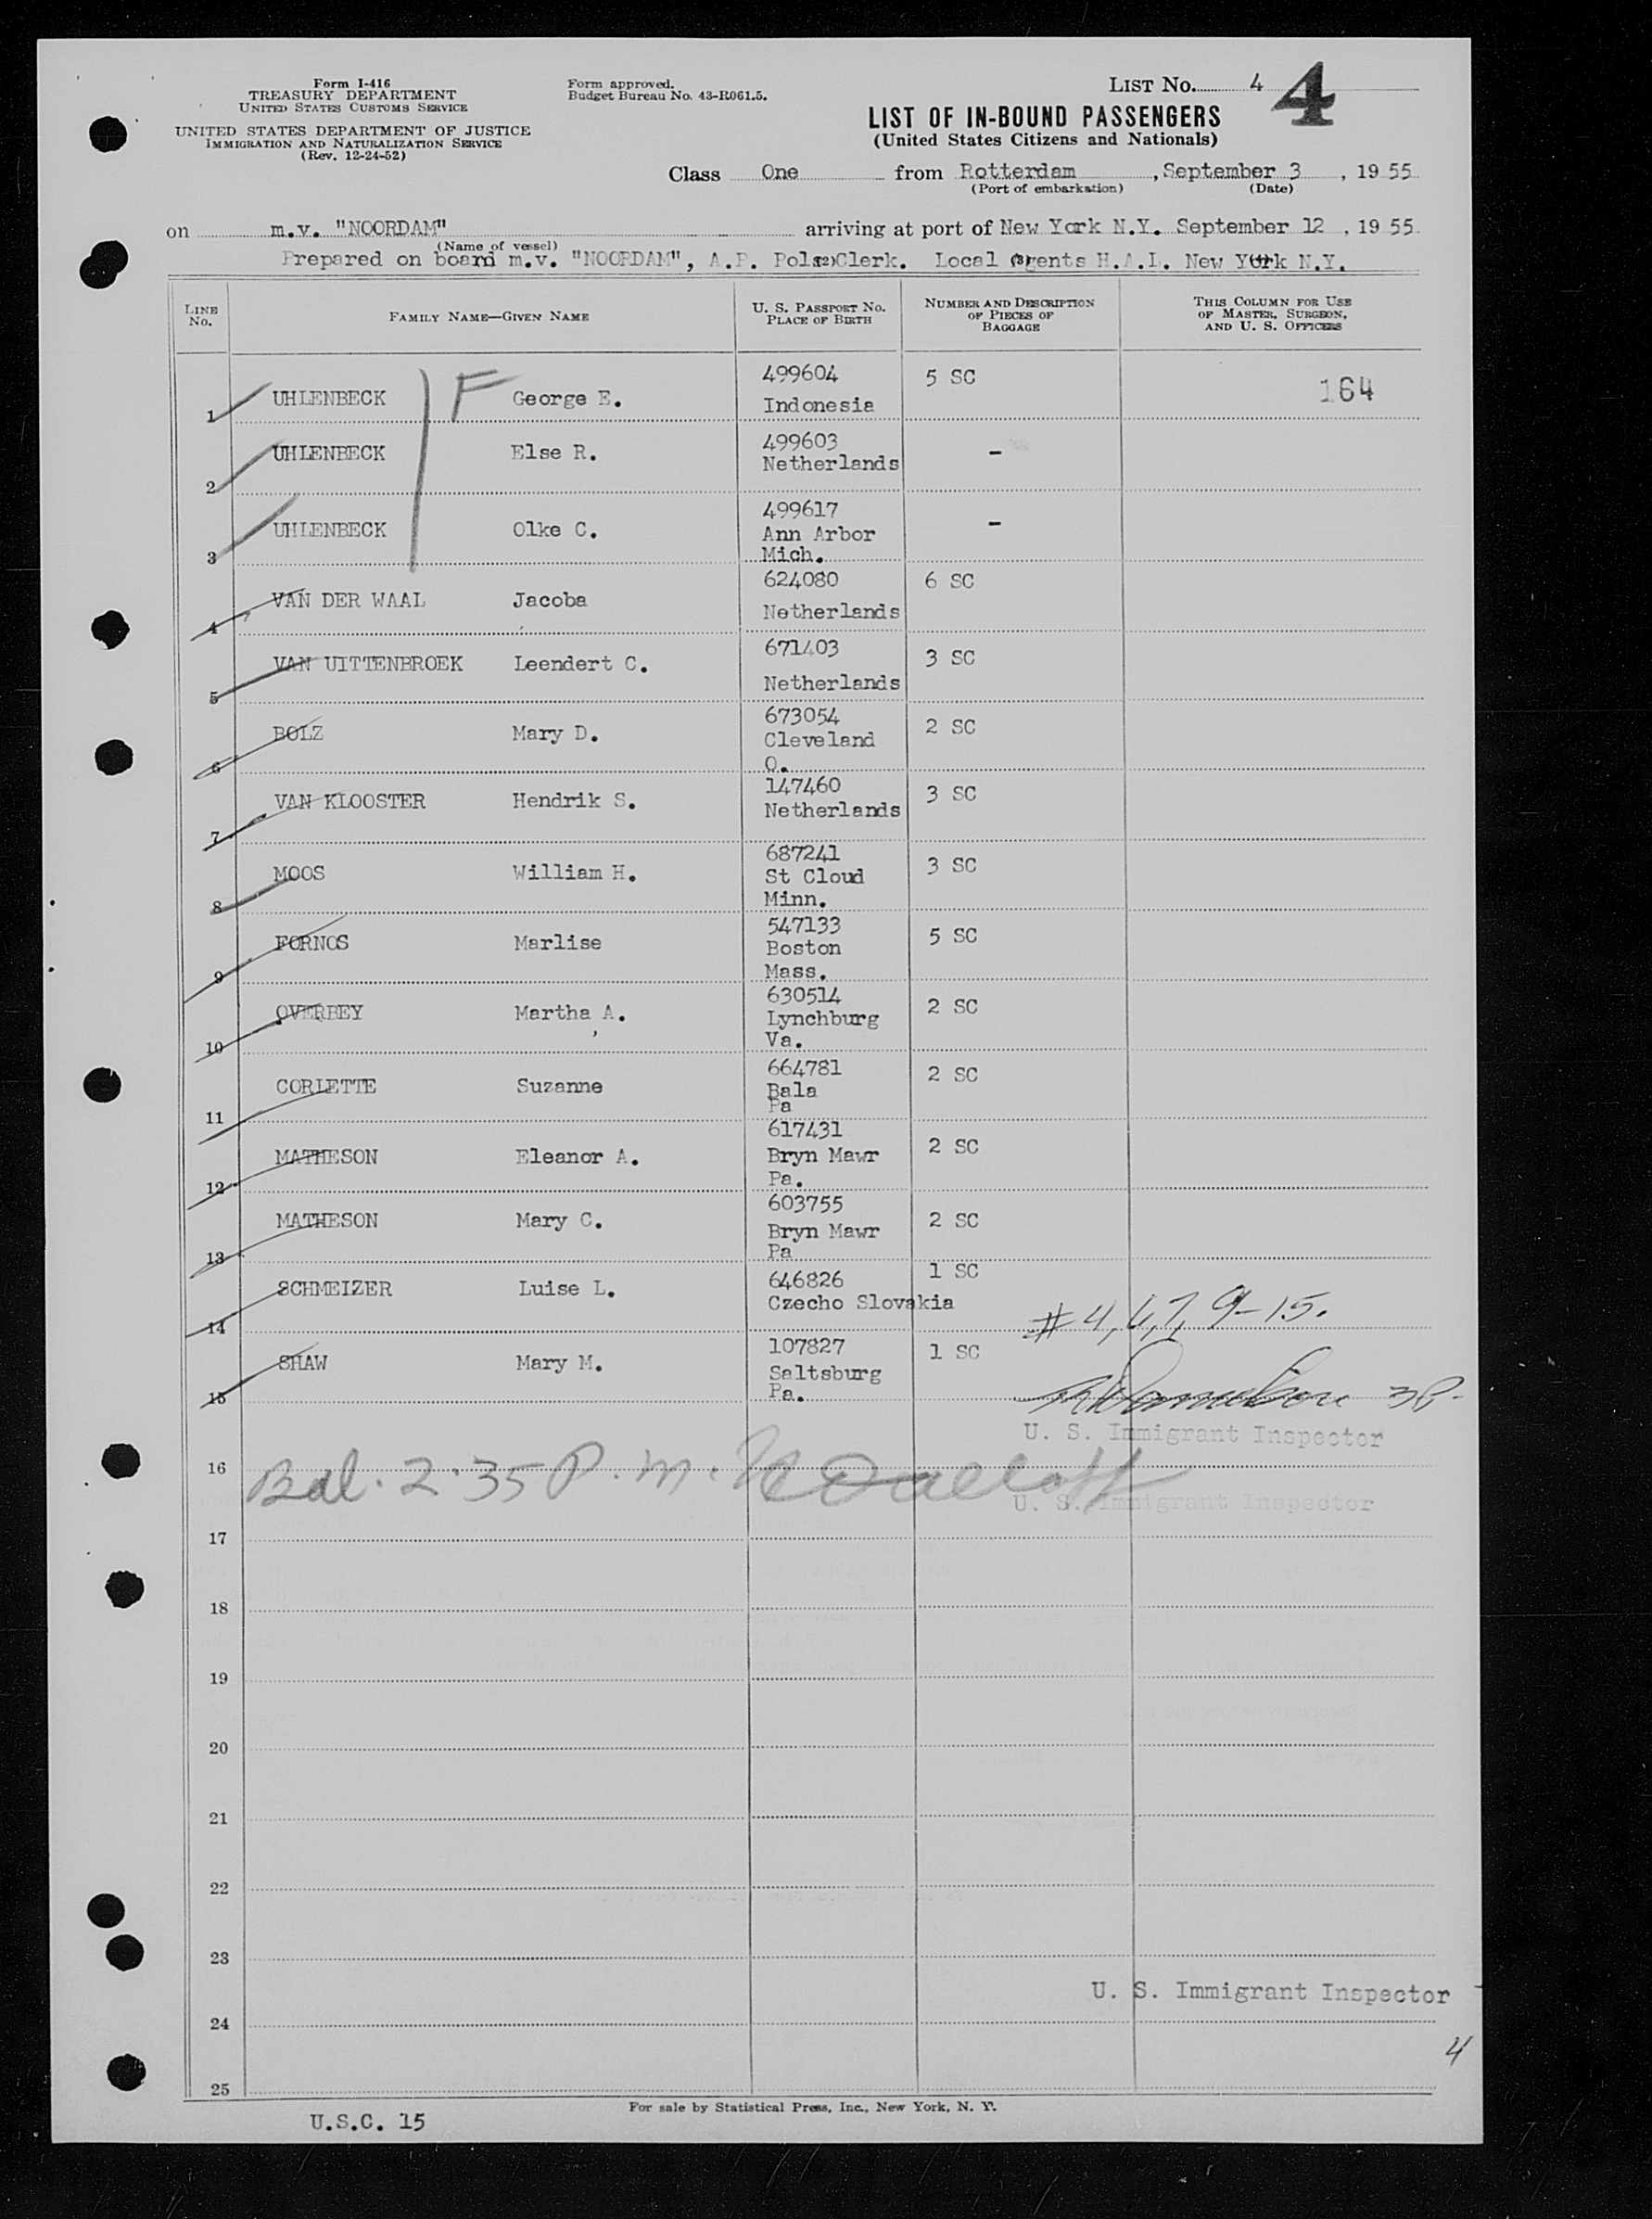 Form I-416
TREASURY DEPARTMENT
UNITED STATES CUSTOMS SERVICE
UNITED STATES DEPARTMENT OF JUSTICE
IMMIGRATION AND NATURALIZATION SERVICE
(Rev. 12-24-52)
Form approved.
Budget Bureau No. 43-R061.5.
LIST No. 4 4
LIST OF IN-BOUND PASSENGERS
(United States Citizens and Nationals)
Class One from Rotterdam , September 3 , 19 55
(Port of embarkation) (Date)
on m.v. "NOORDAM" arriving at port of New York N.Y. September 12 , 19 55
(Name of vessel)
Prepared on board m.v. "NOORDAM", A.P. Pols Clerk. Local Agents H.A.L. New York N.Y.
(2) (3) (4)
LINE No. FAMILY NAME—GIVEN NAME U. S. PASSPORT No. PLACE OF BIRTH NUMBER AND DESCRIPTION OF PIECES OF BAGGAGE THIS COLUMN FOR USE OF MASTER, SURGEON, AND U. S. OFFICERS
1 UHLENBECK F George E. 499604 Indonesia 5 SC 164
2 UHLENBECK Else R. 499603 Netherlands -
3 UHLENBECK Olke C. 499617 Ann Arbor Mich. -
4 VAN DER WAAL Jacoba 624080 Netherlands 6 SC
5 VAN UITTENBROEK Leendert C. 671403 Netherlands 3 SC
6 BOLZ Mary D. 673054 Cleveland O. 2 SC
7 VAN KLOOSTER Hendrik S. 147460 Netherlands 3 SC
8 MOOS William H. 687241 St Cloud Minn. 3 SC
9 FORNOS Marlise 547133 Boston Mass. 5 SC
10 OVERBEY Martha A. 630514 Lynchburg Va. 2 SC
11 CORLETTE Suzanne 664781 Bala Pa 2 SC
12 MATHESON Eleanor A. 617431 Bryn Mawr Pa. 2 SC
13 MATHESON Mary C. 603755 Bryn Mawr Pa 2 SC
14 SCHMEIZER Luise L. 646826 Czecho Slovakia 1 SC
# 4, 6, 7, 9-15.
15 SHAW Mary M. 107827 Saltsburg Pa. 1 SC
U. S. Immigrant Inspector
16 Bal. 2:35 P.m.
U. S. Immigrant Inspector
17
18
19
20
21
22
23
U. S. Immigrant Inspector
24
4
25
For sale by Statistical Press, Inc., New York, N. Y.
U.S.C. 15